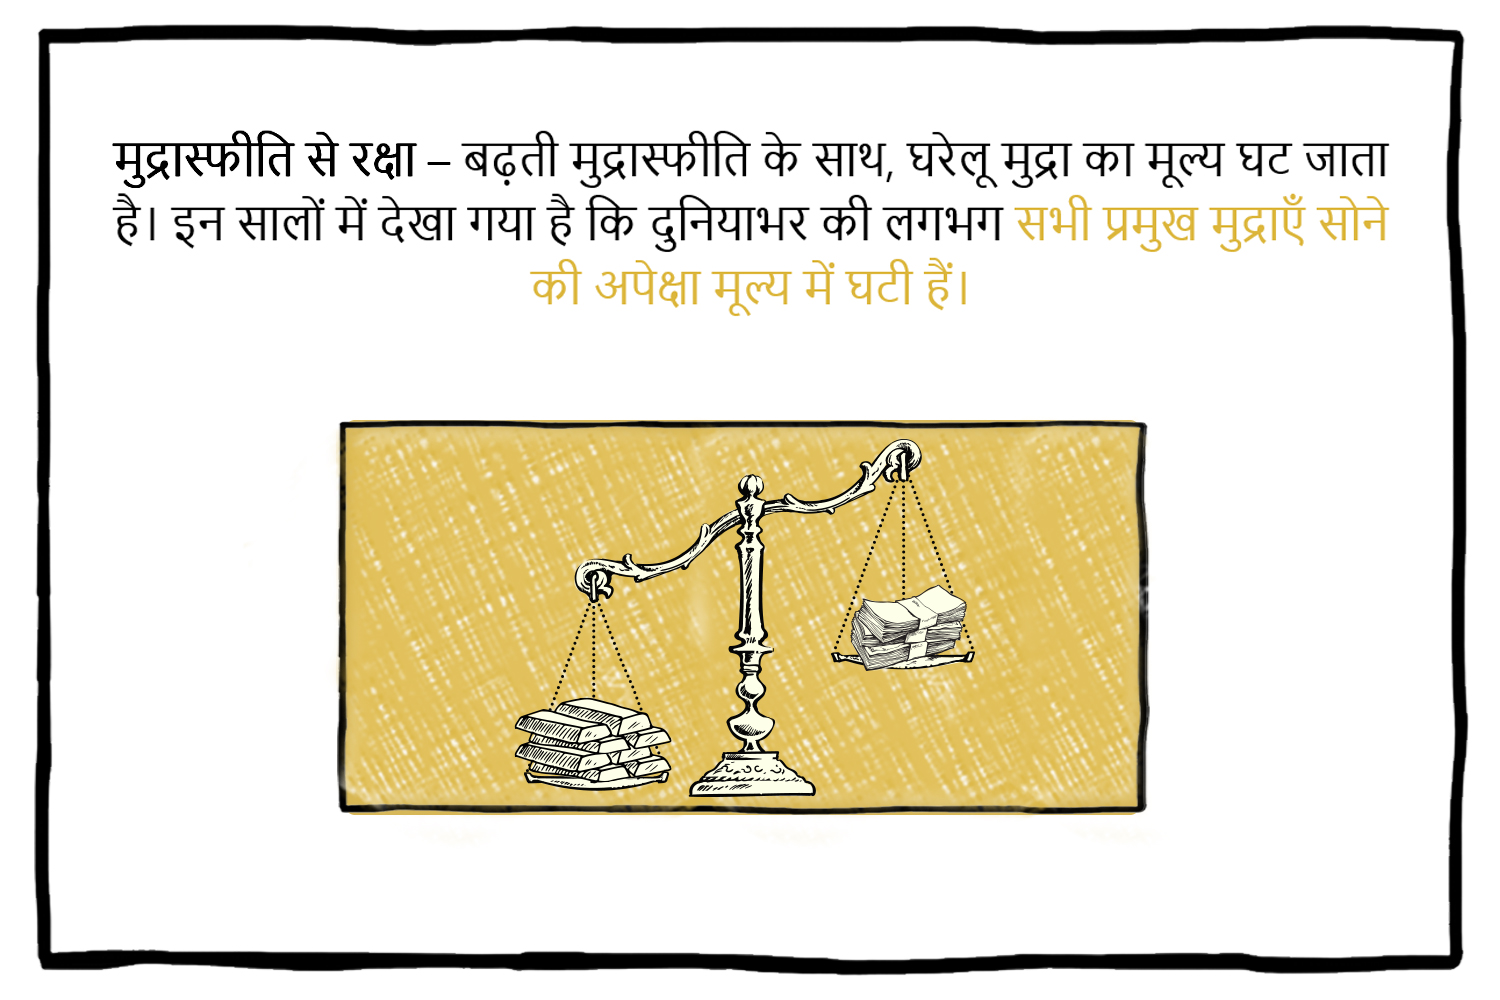 मुद्रास्फीति से रक्षा – बढ़ती मुद्रास्फीति के साथ, घरेलू मुद्रा का मूल्य घट जाता
है। इन सालों में देखा गया है कि दुनियाभर की लगभग सभी प्रमुख मुद्राएँ सोने
की अपेक्षा मूल्य में घटी हैं।